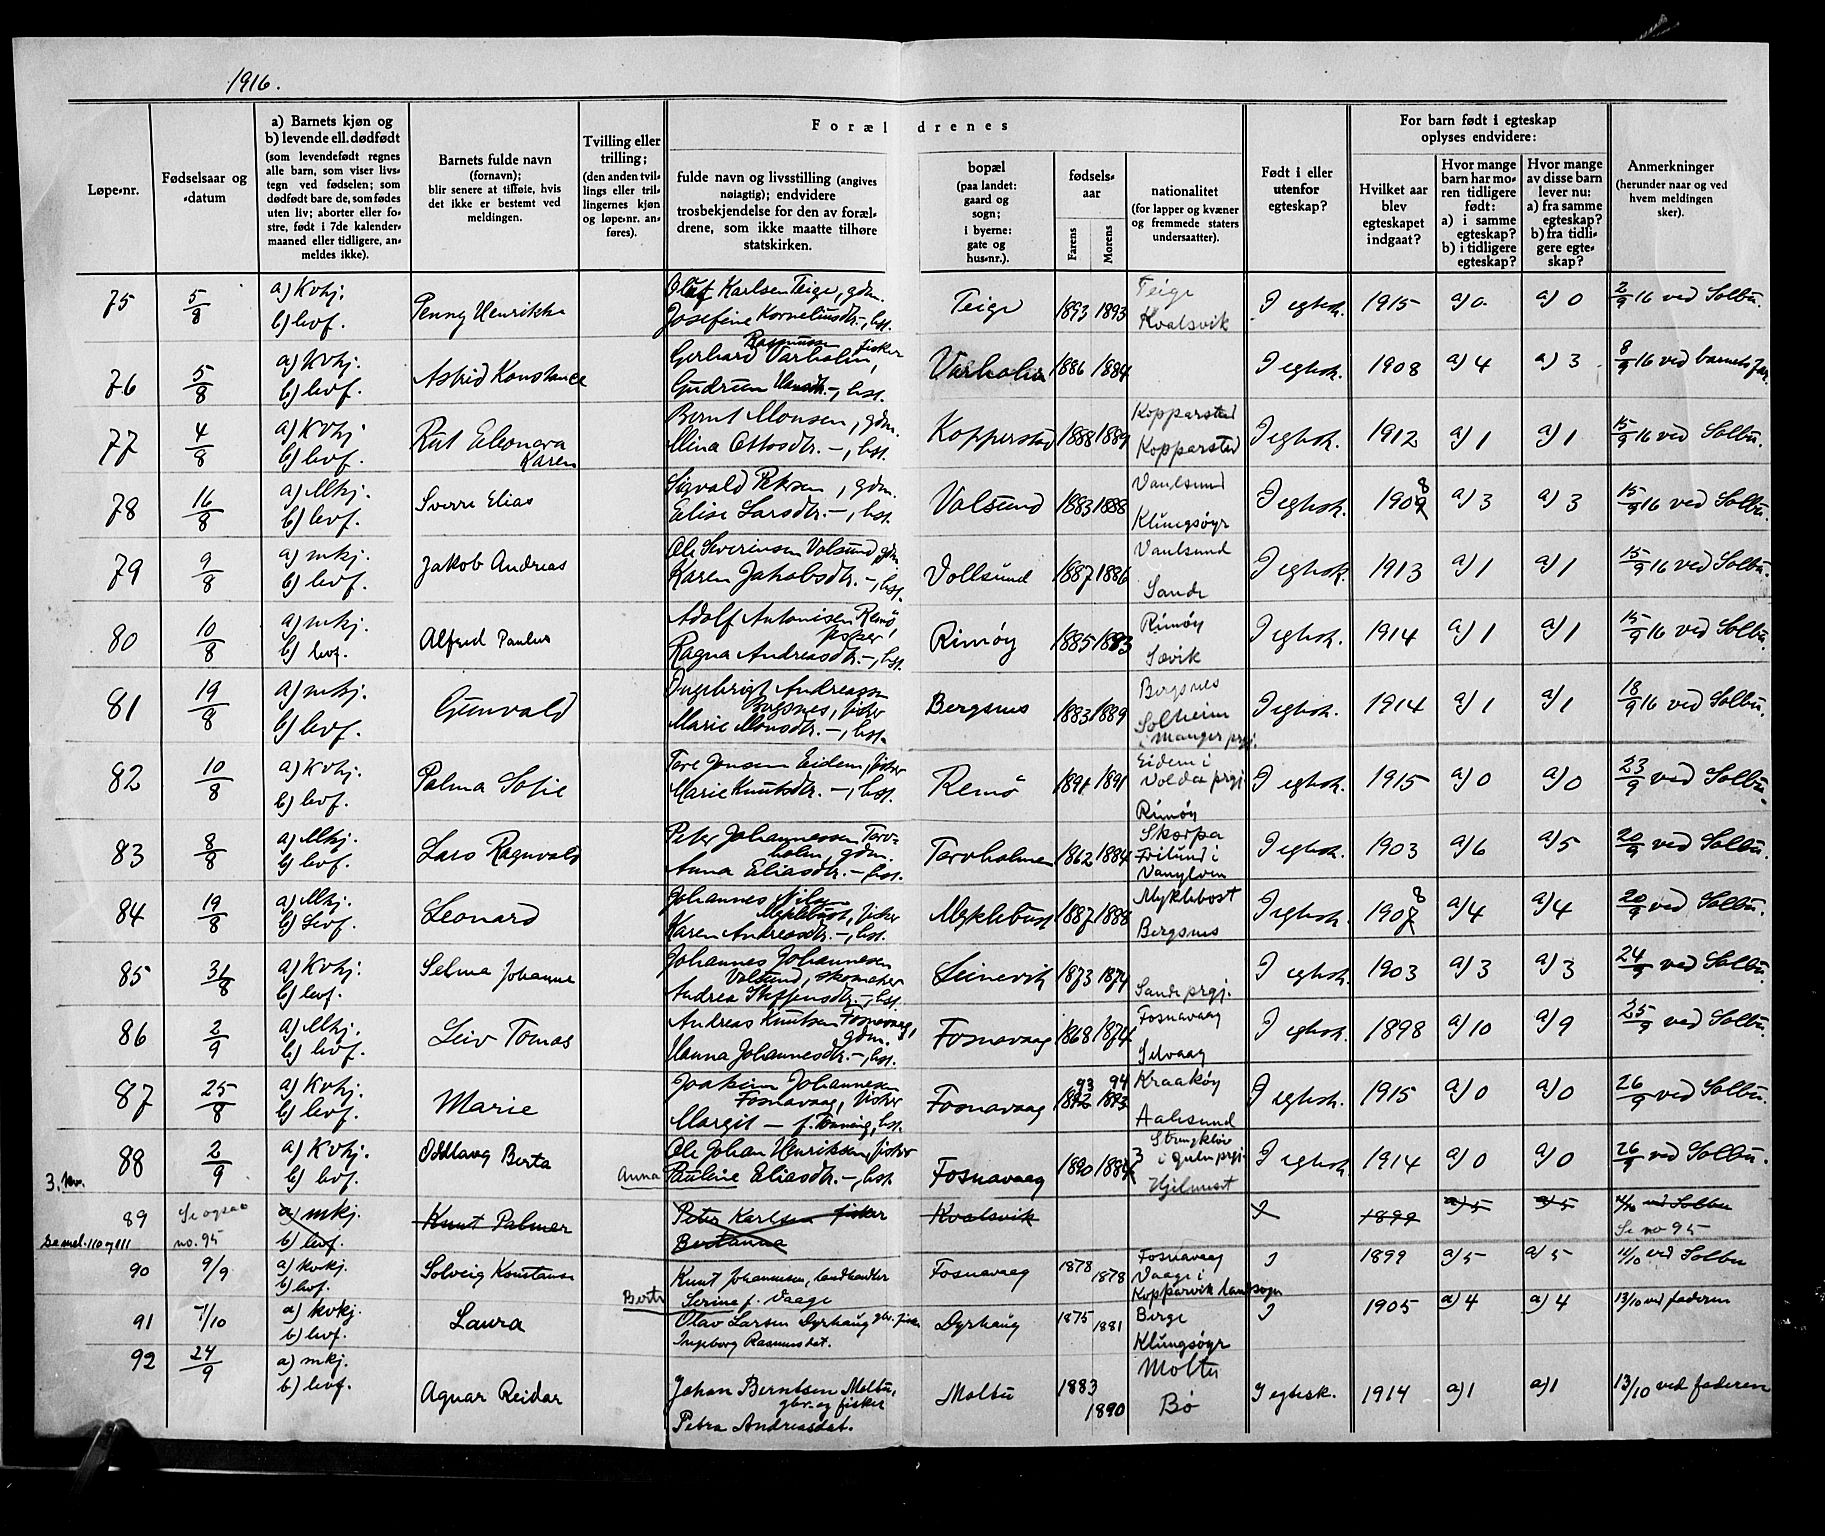 1916.
Løpe-nr.
Fødselsaar og
-datum
a) Barnets kjøn og
b) levende ell. dødfødt
(som levendefødt regnes
alle barn, som viser livs-
tegn ved fødselen; som
dødfødt bare de, som fødes
uten liv; aborter eller fo-
stre, født i 7de kalender-
maaned eller tidligere, an-
meldes ikke).
Barnets fulde navn
(fornavn);
blir senere at tilføie, hvis
det ikke er bestemt ved
meldingen.
Tvilling eller
trilling;
(den anden tvil-
lings eller tril-
lingernes kjøn
og løpe-nr. an-
føres).
Forældrenes
fulde navn og livsstilling (angives
nøiagtig); endvidere
trosbekjendelse for den av foræl-
drene, som ikke maatte tilhøre
statskirken.
bopæl
(paa landet:
gaard og
sogn;
i byerne:
gate og
hus-nr.).
fødsels-
aar
Farens
Morens
nationalitet
(for lapper og kvæner
og fremmede staters
undersaatter).
Født i eller
utenfor
egteskap?
For barn født i egteskap
oplyses endvidere:
Hvilket aar
blev
egteskapet
indgaat?
Hvor mange
barn har mo-
ren tidligere
født:
a) i samme
egteskap?
b) i tidligere
egteskap?
Hvor mange
av disse barn
lever nu:
a) fra samme
egteskap?
b) fra tidli-
gere egte-
skap?
Anmerkninger
(herunder naar og ved
hvem meldingen
sker).
75 5/8 a) Kvkj. Penny Henrikke Olaf Karlsen Teige, gdm. Teige 1893 1893 Teige I egtsk. 1915 a) 0 a) 0 2/9 16 ved Solbu.
b) levf. Josefine Korneliusdtr. -, hst. Kvalsvik
76 5/8 a) Kvkj. Astrid Konstance Gerhard Rasmussen Varholm, fisker Varholm 1886 1884 I egtsk. 1908 a) 4 a) 3 8/9 16 ved barnets far.
b) levf. Gudrun Hansdtr. -, hst.
77 4/8 a) Kvkj Rut Eleonora Bernt Monsen, gdm. Kopperstad 1888 1889 Kopparstad I egtsk. 1912 a) 1 a) 1 15/9 16 ved Solbu.
b) levf. Karen Mina Ottosdtr. -, hst. Kopparstad
78 16/8 a) Mkj. Sverre Elias Sigvald Petersen, gdm. Valsund 1883 1888 Vaulsund I egtsk. 1908 a) 3 a) 3 15/9 16 ved Solbu.
b) levf. Elise Larsdtr. -, hst. Klungsøyr
79 9/8 a) mkj. Jakob Andreas Ole Severinsen Valsund, gdm. Vollsund 1887 1886 Vaulsund I egtsk. 1913 a) 1 a) 1 15/9 16 ved Solbu.
b) levf. Karen Jakobsdtr. -, hst. Sande
80 10/8 a) mkj. Alfred Paulus Adolf Antonisen Remö, Rimøy 1885 1883 Rimøy I egtsk. 1914 a) 1 a) 1 15/9 16 ved Solbu.
fisker,
b) levf. Ragna Andreasdtr. -, hst. Sævik
81 19/8 a) mkj. Gunvald Ingebrigt Andreassen Bergsnes 1883 1889 Bergsnes I egtsk. 1914 a) 1 a) 1 18/9 16 ved Solbu.
Bergsnes, fisker Solheim
b) levf. Marie Monsdtr. -, hst. i Manger prgj.
82 10/8 a) Kvkj. Palma Sofie Tore Jonsen Eidem, fisker Remö 1891 1891 Eidem i I egtsk. 1915 a) 0 a) 0 23/9 ved Solbu.
Volda prgj
b) levf. Marie Knutsdtr. -, hst. Rimøy
83 8/8 a) Mkj. Lars Ragnvald Peter Johannessen Torv- Torvholmen 1862 1884 Skorpa I egtsk. 1903 a) 6 a) 5 20/9 ved Solbu.
holm, gdm. i
b) levf. Anna Eliasdtr. - hst. Vanylven
84 19/8 a) Mkj. Leonard Johannes Nilsen Myklebust 1887 1888 Myklebost I egtsk. 1908 a) 4 a) 4 20/9 ved Solbu.
Myklebust, fisker
b) Levf. Karen Andreasdtr. -, hst. Bergsnes
85 31/8 a) Kvkj: Selma Johanne Johannes Johannesen Leinevik 1873 1874 I egtsk. 1903 a) 3 a) 3 24/9 ved Solbu.
Valsund, skomaker
b) levf. Andrea Steffensdtr. -, hst. Sande prgj.
86 2/9 a) Mkj. Leiv Tomas Andreas Knutsen Fosnavaag, Fosnavaag 1868 1874 Fosnavaag I egtsk. 1898 a) 10 a) 9 25/9 ved Solbu.
gdm.
b) levf. Hanna Johannesdtr. -, hst. Selvaag
87 25/8 a) Kvkj. Marie Joakim Johannesen Fosnavaag 1892 93 1893 94 Kraakøy I egtsk. 1915 a) 0 a) 0 26/9 ved Solbu.
Fosnavaag, fisker
b) levf. Margit - f. , hst. Aalesund
88 2/9 a) Kvkj. Oddlaug Berta Ole Johan Henriksen, fisker Fosnavaag 1890 1884 3 i Gulen prgj. I egtsk. 1914 a) 0 a) 0 26/9 ved Solbu.
3. b) levf. Anna Pauline Eliasdtr. -, hst.
89 Se ogsaa a) mkj. Knut Palmer Peter Karlsen fisker Kvalsvik I 1899 a) 5 a) 5 11/10 ved Solbu
no. 95 b) levf. Bertanna Se no 95
110 og 111
90 9/9 a) kvkj. Solveig Konstanse Knut Johannesen, landhandler Fosnavaag 1878 1878 Fosnavaag I 1899 a) 5 a) 5 11/10 ved Solbu
b) levf. Serine f. Vaage Vaage i
Kopparvik landsogn
91 1/10 a) kvkj. Laura Berte Olav Larsen Dyrhaug gbr. fisker Dyrhaug 1875 1881 Berge I 1905 a) 4 a) 4 13/10 ved faderen
b) levf. Ingeborg Rasmusdat. Klungsøyr
92 24/9 a) mkj. Agnar Reidar Johan Berntsen Moltu, Moltu 1883 1890 Moltu I egtesk. 1914 a) 1 a) 1 13/10 ved faderen
b) levf. gbr. og fisker Bø
Petra Andreasdat.